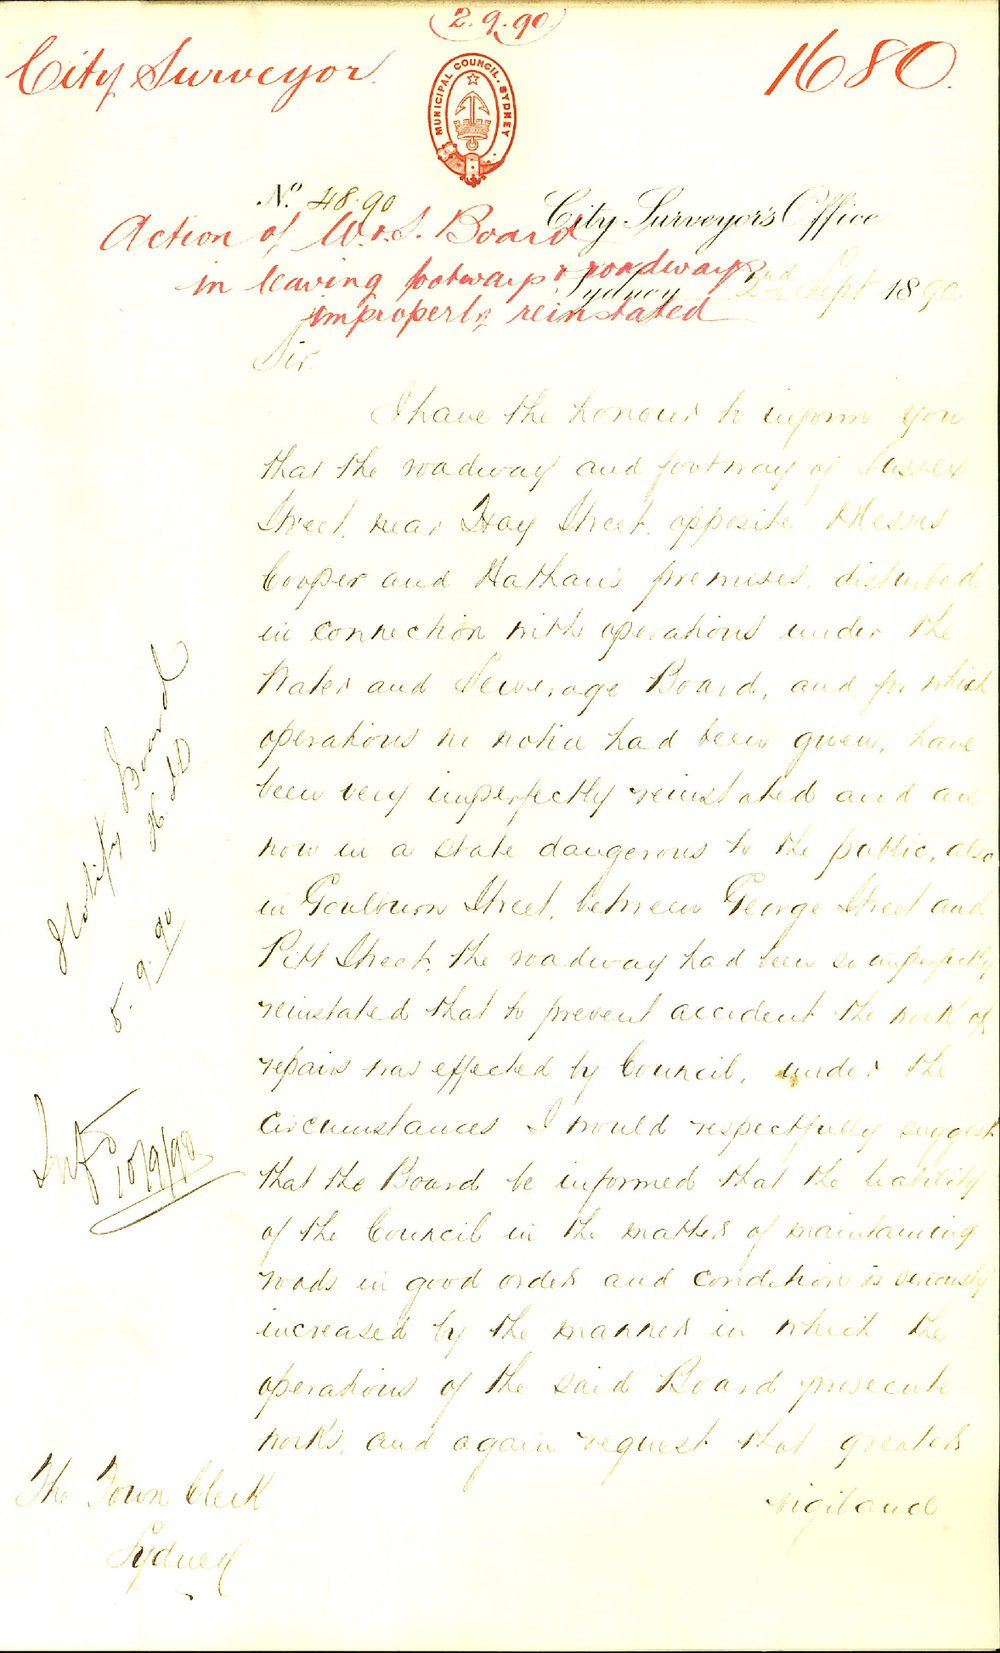 2.9.90
City Surveyor.
1680.
MUNICIPAL COUNCIL. SYDNEY
No. 48.90
City Surveyor's Office
Action of W. & S. Board
in leaving footways & roadways
Sydney 2nd Sept 1890
improperly reinstated
Sir.
I have the honour to inform you
that the roadway and footway of Sussex
Street, near Hay Street, opposite Messrs
Cooper and Nathan's premises, disturbed
in connection with operations under the
Water and Sewerage Board, and for which
operations no notice had been given, have
been very imperfectly reinstated and are
now in a state dangerous to the public, also
in Goulburn Street, between George Street and
Pitt Street, the roadway had been so imperfectly
reinstated that to prevent accident the work of
repairs was effected by Council, under the
circumstances I would respectfully suggest
that the Board be informed that the liability
of the Council in the matter of maintaining
roads in good order and condition is seriously
increased by the manner in which the
operations of the said Board prosecute
works, and again request that greater
vigilance
The Town Clerk
Sydney
Notify Board
5.9.90
10/9/90